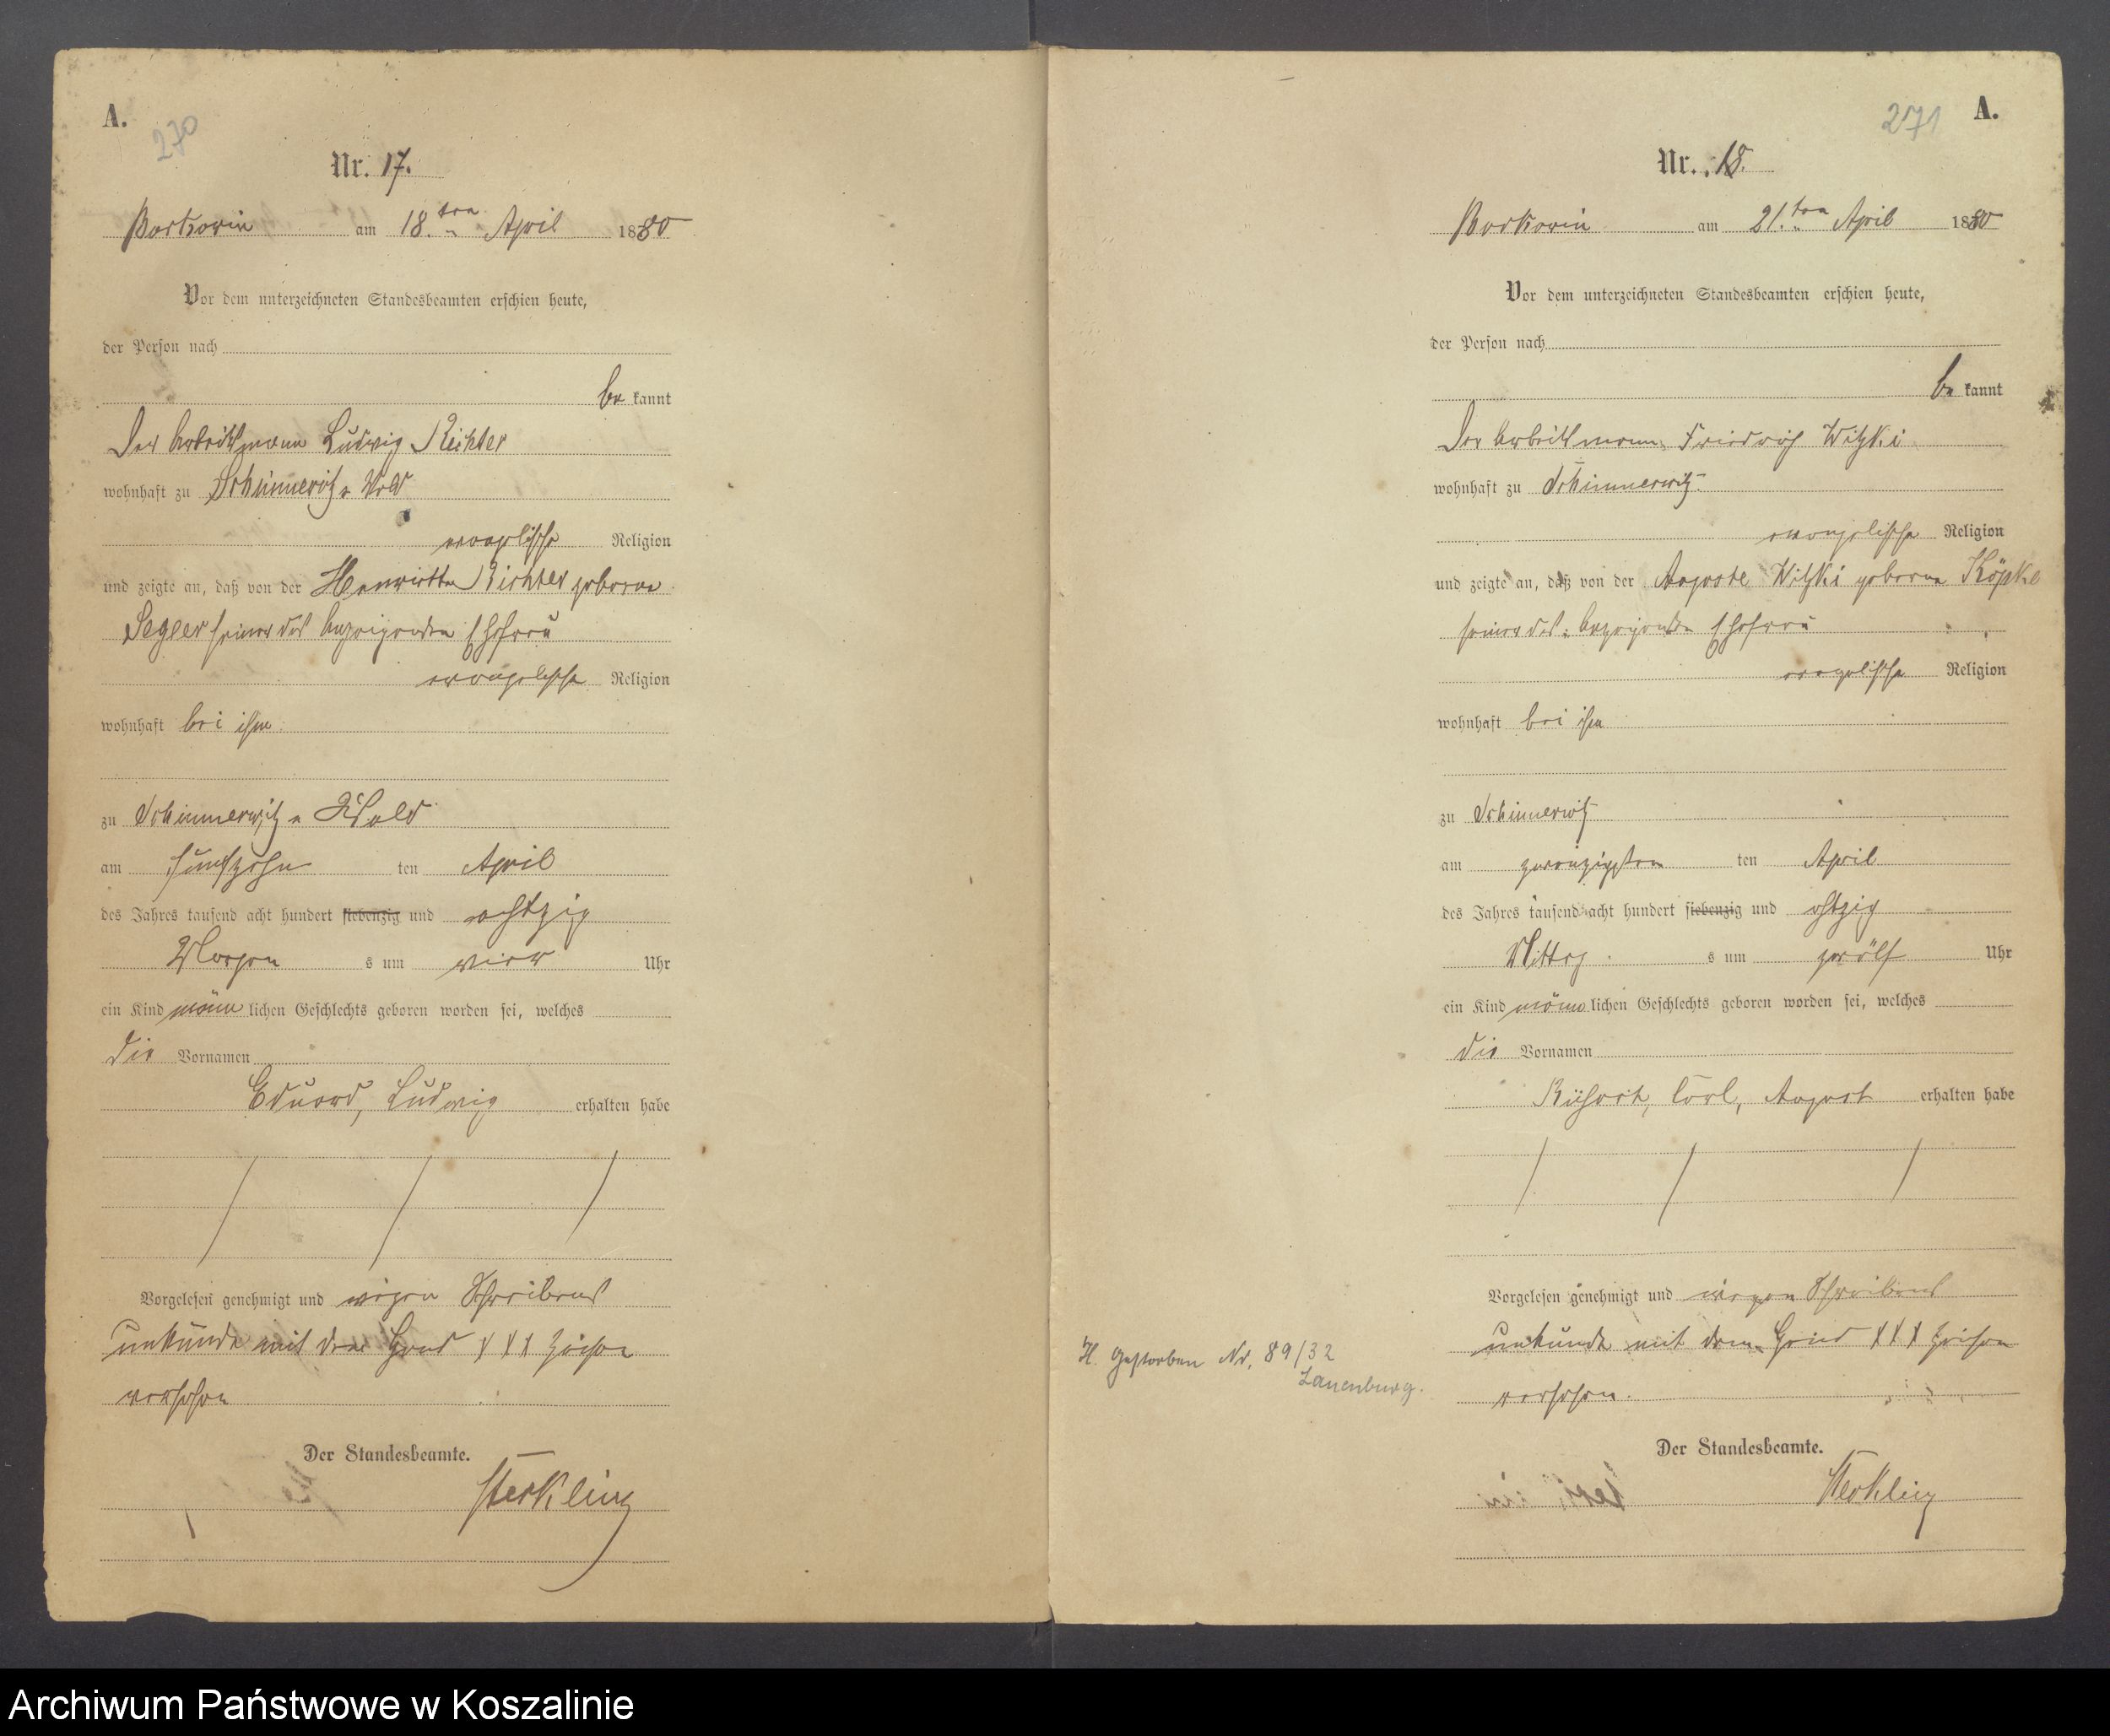 A.
270
Nr. 17.
Borkowin am 18.ten April 1880
Vor dem unterzeichneten Standesbeamten erschien heute,
der Person nach
be kannt
Der Arbeitsmann Ludwig Richter
wohnhaft zu Schimmerwitz Wald
evanglische Religion
und zeigte an, daß von der Henriette Richter geborne
Seger seiner des Anzeigenden Ehefrau
evangelische Religion
wohnhaft bei ihm
zu Schimmerwitz Wald
am fünfzehn ten April
des Jahres tausend acht hundert siebenzig und achtzig
Morgen s um vier Uhr
ein Kind männ lichen Geschlechts geboren worden sei, welches
die Vornamen
Eduard, Ludwig erhalten habe
Vorgelesen genehmigt und wegen Schreibens
unkunde mit dem Hand XXX Zeichen
versehen
Der Standesbeamte.
Sterkling
A.
271
Nr. 18.
Borkowin am 21.ten April 1880
Vor dem unterzeichneten Standesbeamten erschien heute,
der Person nach
be kannt
Der Arbeitsmann Friedrich Witzki
wohnhaft zu Schimmerwitz
evangelische Religion
und zeigte an, daß von der Auguste Witzki geborne Köpke
seiner des Anzeigenden Ehefrau
evagelische Religion
wohnhaft bei ihm
zu Schimmerwitz
am zwanzigsten ten April
des Jahres tausend acht hundert siebenzig und achtzig
Mittag s um zwölf Uhr
ein Kind männ lichen Geschlechts geboren worden sei, welches
die Vornamen
Carl, August erhalten habe
Vorgelesen genehmigt und wegen Schreibens
unkunde mit dem Hand XXX Zeichen
versehen.
H. Gestorben Nr. 89/32
Lauenburg.
Der Standesbeamte.
Sterkling
Archiwum Państwowe w Koszalinie